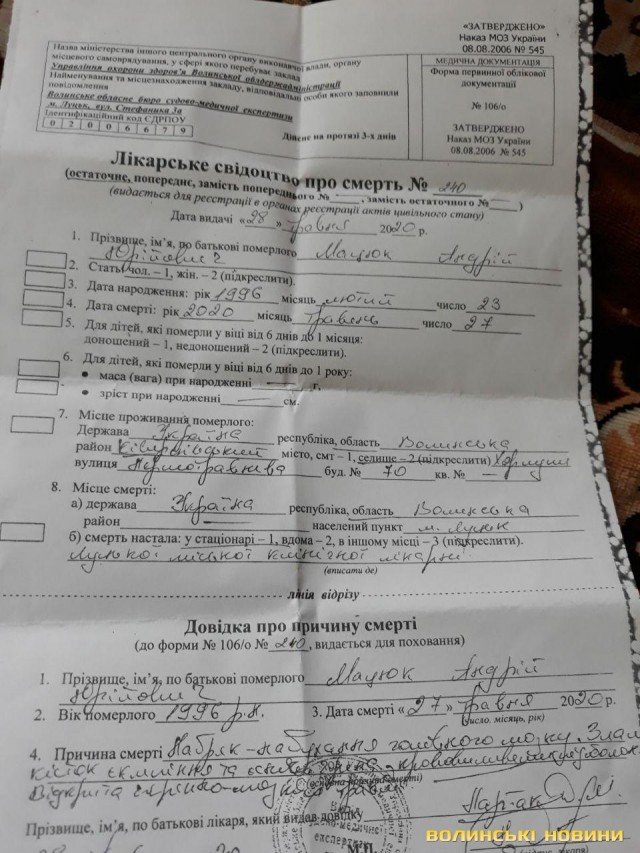 «ЗАТВЕРДЖЕНО»
Наказ МОЗ України
08.08.2006 № 545
Назва міністерства іншого центрального органу виконавчої влади, органу
місцевого самоврядування, у сфері якого перебуває заклад
Управління охорони здоров'я Волинської облдержадміністрації
Найменування та місцезнаходження закладу, відповідальної особи якого заповнили
повідомлення
Волинське обласне бюро судово-медичної експертизи
м. Луцьк, вул. Стефаника 3а
Ідентифікаційний код ЄДРПОУ
0 2 0 0 6 6 7 9
Дійсне на протязі 3-х днів
МЕДИЧНА ДОКУМЕНТАЦІЯ
Форма первинної облікової
документації
№ 106/о
ЗАТВЕРДЖЕНО
Наказ МОЗ України
08.08.2006 № 545
Лікарське свідоцтво про смерть № 240
(остаточне, попереднє, замість попереднього № — , замість остаточного № — )
(видається для реєстрації в органах реєстрації актів цивільного стану)
Дата видачі «28» травня 2020 р.
1. Прізвище, ім'я, по батькові померлого Мацюк Андрій
Юрійович
2. Стать: чол. – 1, жін. – 2 (підкреслити).
3. Дата народження: рік 1996 місяць лютий число 23
4. Дата смерті: рік 2020 місяць травень число 27
5. Для дітей, які померли у віці від 6 днів до 1 місяця:
доношений – 1, недоношений – 2 (підкреслити).
6. Для дітей, які померли у віці від 6 днів до 1 року:
• маса (вага) при народженні — г,
• зріст при народженні — см.
7. Місце проживання померлого:
Держава Україна республіка, область Волинська
район Ківерцівський місто, смт – 1, селище – 2 (підкреслити)
вулиця Першотравнева буд. № 70 кв. № —
8. Місце смерті:
а) держава Україна республіка, область Волинська
район — населений пункт м. Луцьк
б) смерть настала: у стаціонарі – 1, вдома – 2, в іншому місці – 3 (підкреслити).
Луцької міської клінічної лікарні
(вписати де)
лінія відрізу
Довідка про причину смерті
(до форми № 106/о № 240, видається для поховання)
1. Прізвище, ім'я, по батькові померлого Мацюк Андрій
Юрійович
2. Вік померлого 1996 р.н. 3. Дата смерті «27» травня 2020 р.
(число, місяць, рік)
4. Причина смерті Набряк-набухання головного мозку.
кісток склепіння та основи
Відкрита черепно-мозкова травма
Прізвище, ім'я, по батькові лікаря, який видав довідку
М.П.
ВОЛИНСЬКІ НОВИНИ